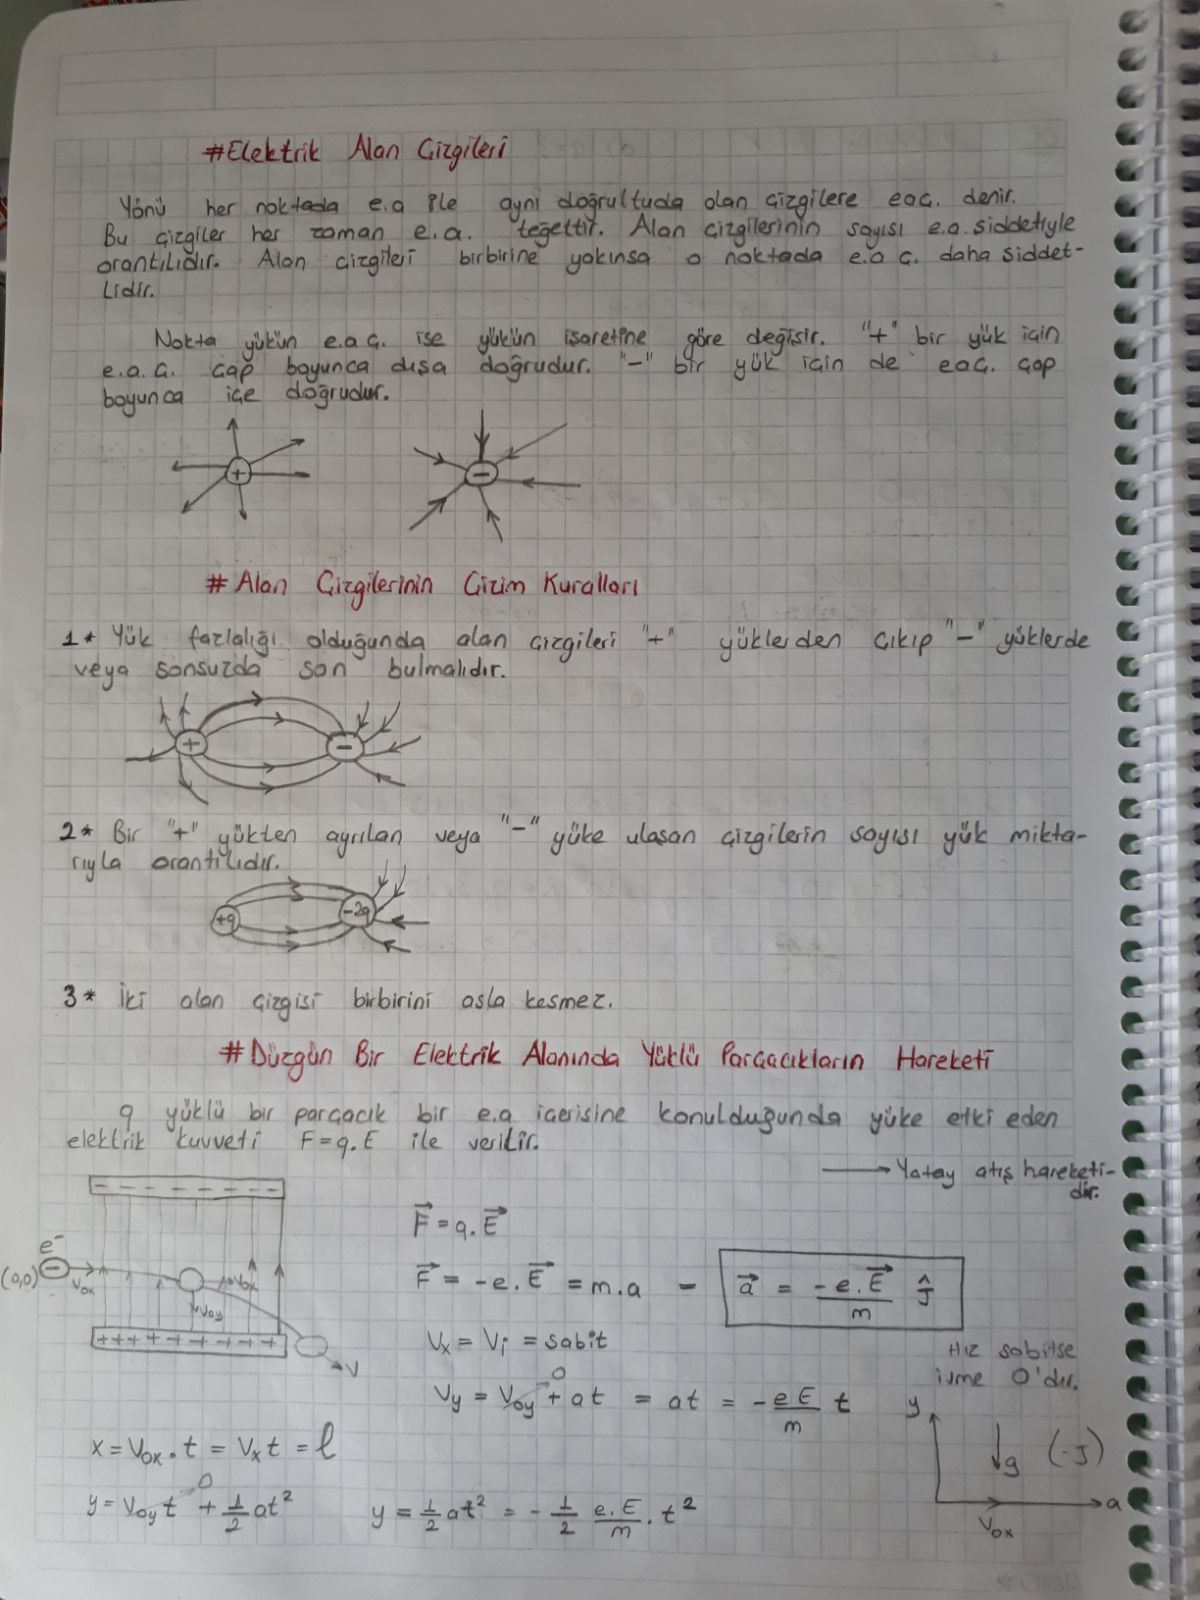 #Elektrik Alan Çizgileri
Yönü her noktada e.a ile aynı doğrultuda olan çizgilere eaç. denir.
Bu çizgiler her zaman e.a. teğettir. Alan çizgilerinin sayısı e.a. şiddetiyle
orantılıdır. Alan çizgileri birbirine yakınsa o noktada e.a ç. daha şiddet-
lidir.
Nokta yükün e.a ç. ise yükün işaretine göre değişir. "+" bir yük için
e.a.ç. çap boyunca dışa doğrudur. "-" bir yük için de eaç. çap
boyunca içe doğrudur.
+
-
# Alan Çizgilerinin Çizim Kuralları
1* Yük fazlalığı olduğunda alan çizgileri "+" yüklerden çıkıp "-" yüklerde
veya sonsuzda son bulmalıdır.
+ -
2* Bir "+" yükten ayrılan veya "-" yüke ulaşan çizgilerin sayısı yük mikta-
rıyla orantılıdır.
+q -2q
3* İki alan çizgisi birbirini asla kesmez.
#Düzgün Bir Elektrik Alanında Yüklü Parçacıkların Hareketi
q yüklü bir parçacık bir e.a içerisine konulduğunda yüke etki eden
elektrik kuvveti F=q.E ile verilir.
→ Yatay atış hareketi-
dir.
- - - - - - -
F⃗ = q.E⃗
e⁻
(0,0) - Vox Vox
F⃗ = -e.E⃗ = m.a - a⃗ = -e.E⃗/m ĵ
Voy
+++ + + + + + +
V
Vx = Vi = sabit
Hız sabitse
ivme 0'dır.
Vy = Voy + at = at = - eE/m t
0
y
g (-J)
a
Vox
x = Vox . t = Vx t = l
y = Voy t + 1/2 at²
0
y = 1/2 at² = - 1/2 e.E/m . t²